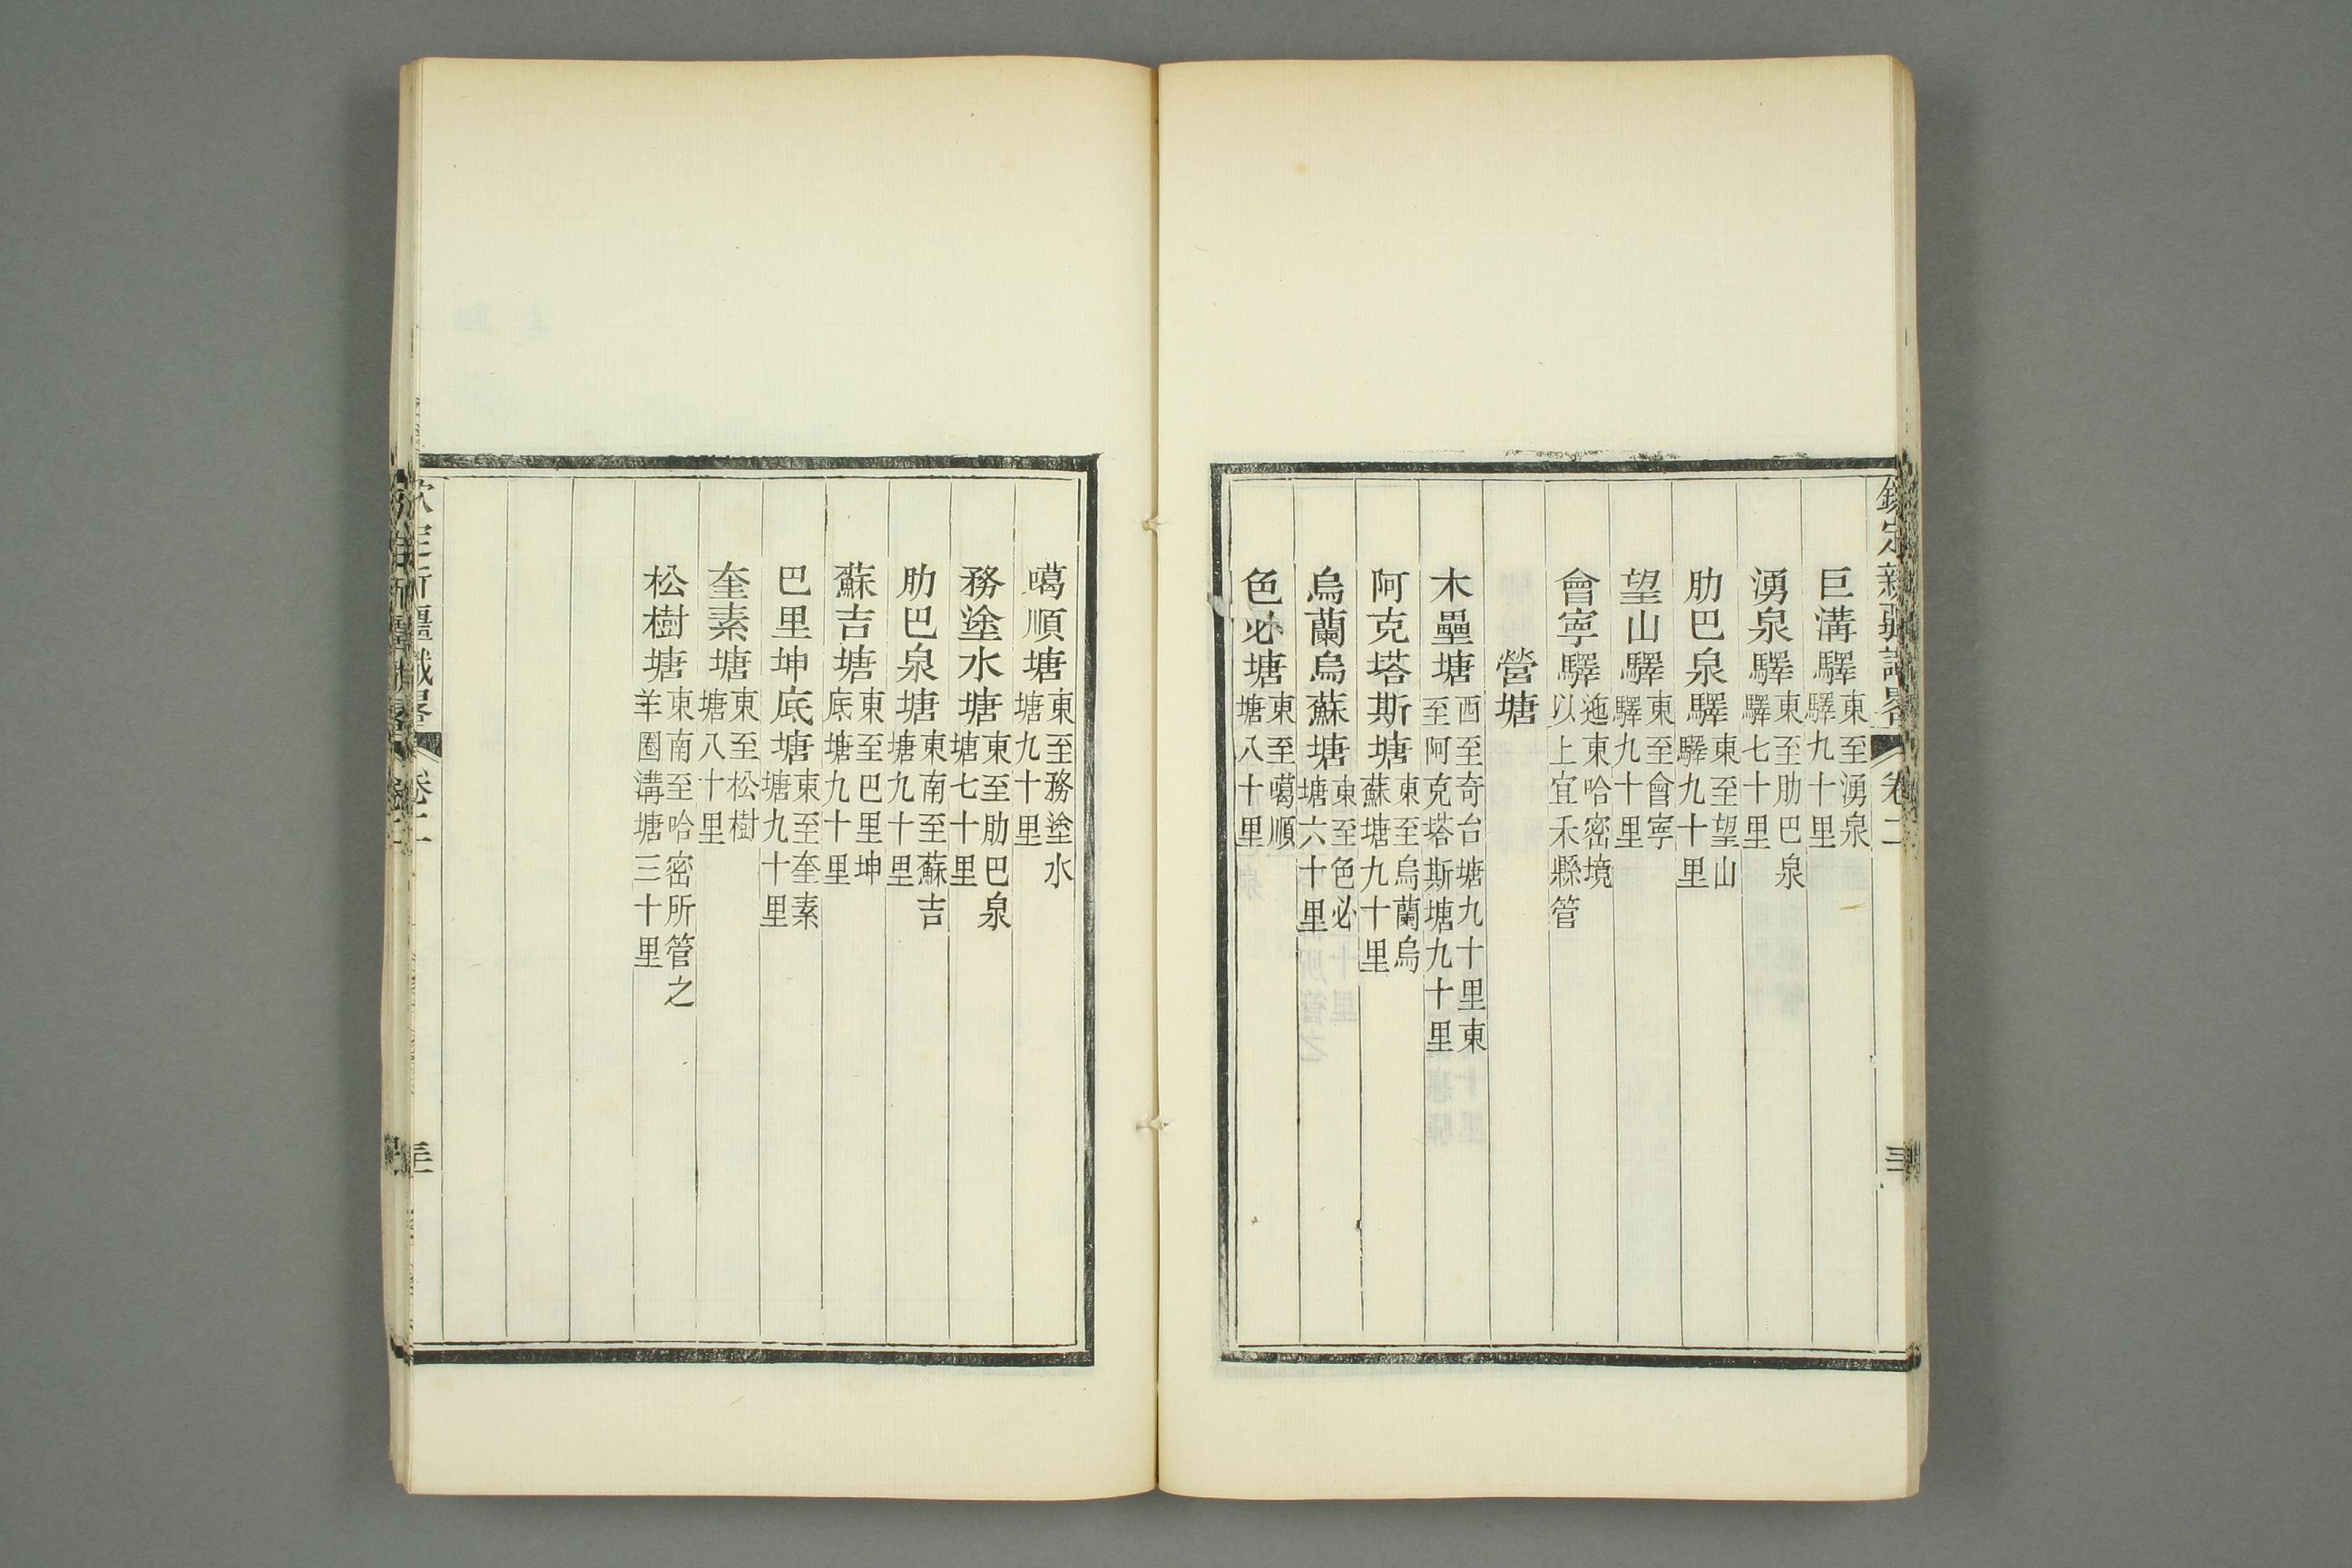 欽定新疆識畧 卷二
巨溝驛東至湧泉驛九十里
湧泉驛東至肋巴泉驛七十里
肋巴泉驛東至望山驛九十里
望山驛東至會寧驛九十里
會寧驛迤東哈密境以上宜禾縣管
營塘
木壘塘西至奇台塘九十里東至阿克塔斯塘九十里
阿克塔斯塘東至烏蘭烏蘇塘九十里
烏蘭烏蘇塘東至色必塘六十里
色必塘東至噶順塘八十里
噶順塘東至務塗水塘九十里
務塗水塘東至肋巴泉塘七十里
肋巴泉塘東南至蘇吉塘九十里
蘇吉塘東至巴里坤底塘九十里
巴里坤底塘東至奎素塘九十里
奎素塘東至松樹塘八十里
松樹塘東南至哈密所管之羊圈溝塘三十里
欽定新疆識畧 卷二